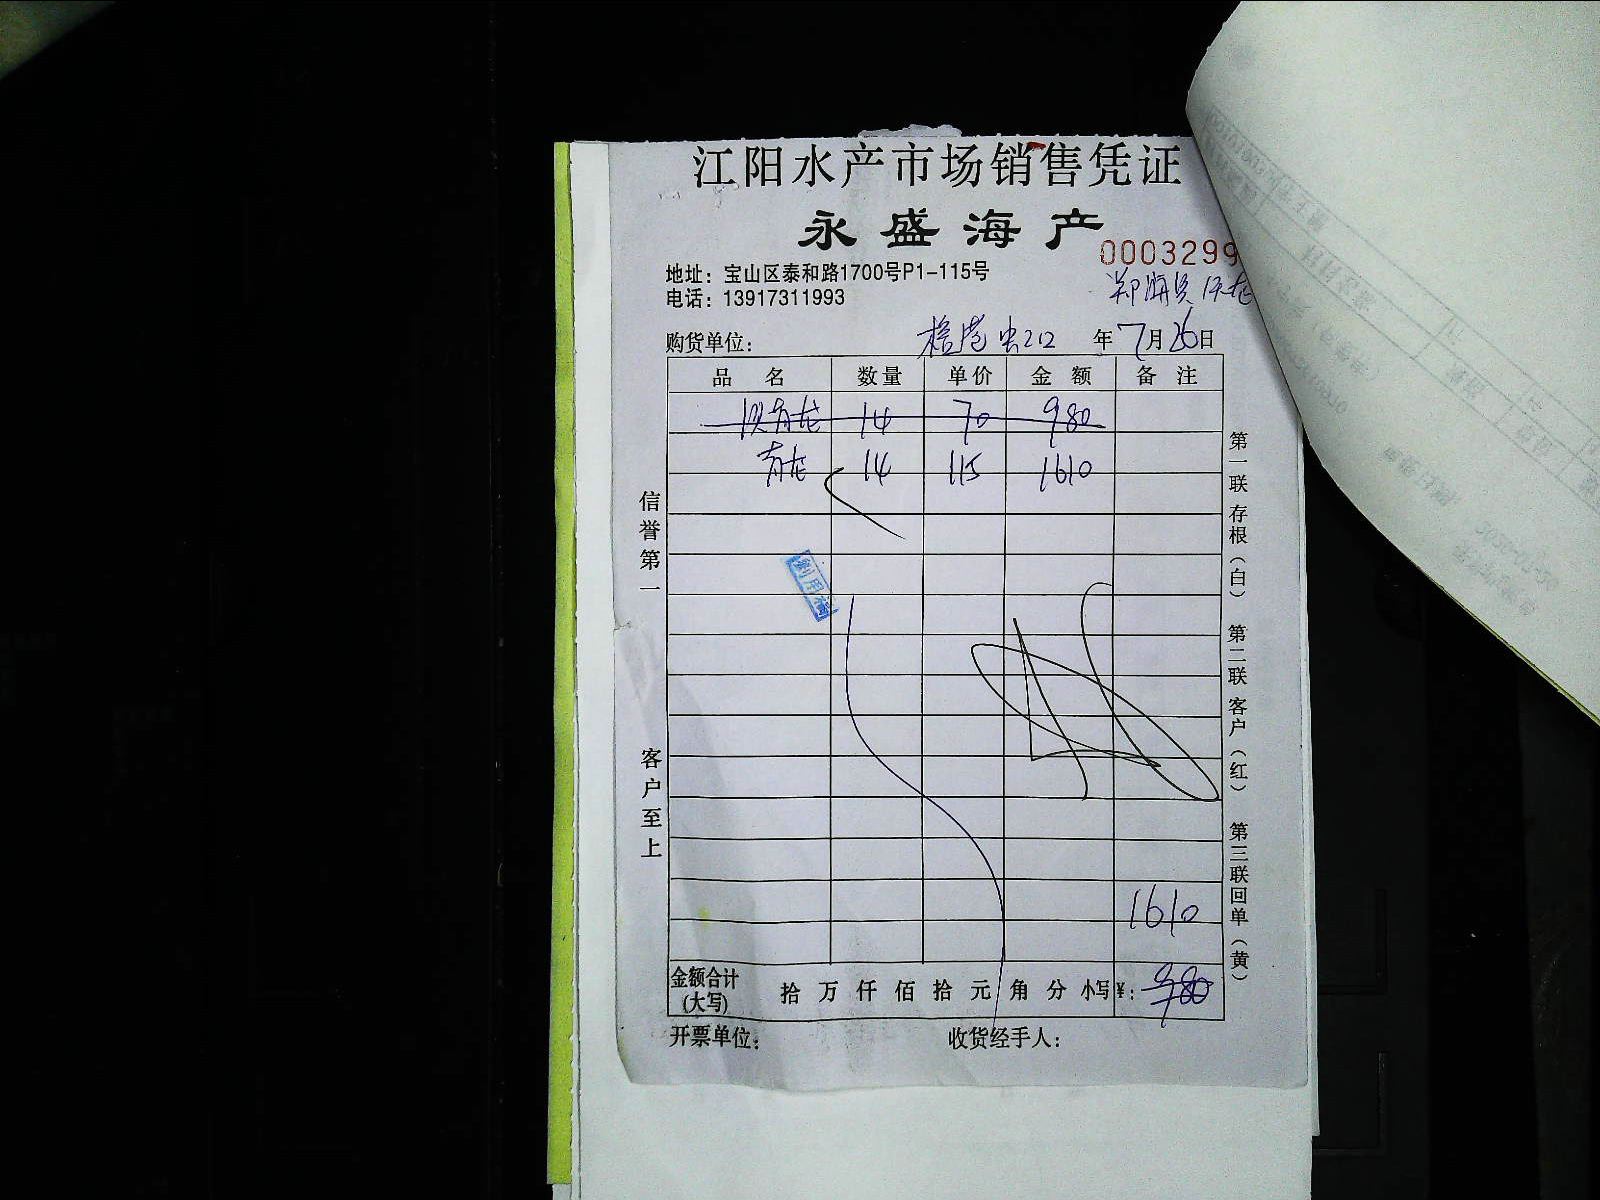 江阳水产市场销售凭证
永盛海产
0003299
地址：宝山区泰和路1700号P1-115号
电话：13917311993
购货单位： 年7月26日
品名 数量 单价 金额 备注
青龙 14 70 980
青龙 14 115 1610
信誉第一
客户至上
第一联存根（白） 第二联客户（红） 第三联回单（黄）
1610
金额合计（大写） 拾 万 仟 佰 拾 元 角 分 小写¥： 980
开票单位： 收货经手人：